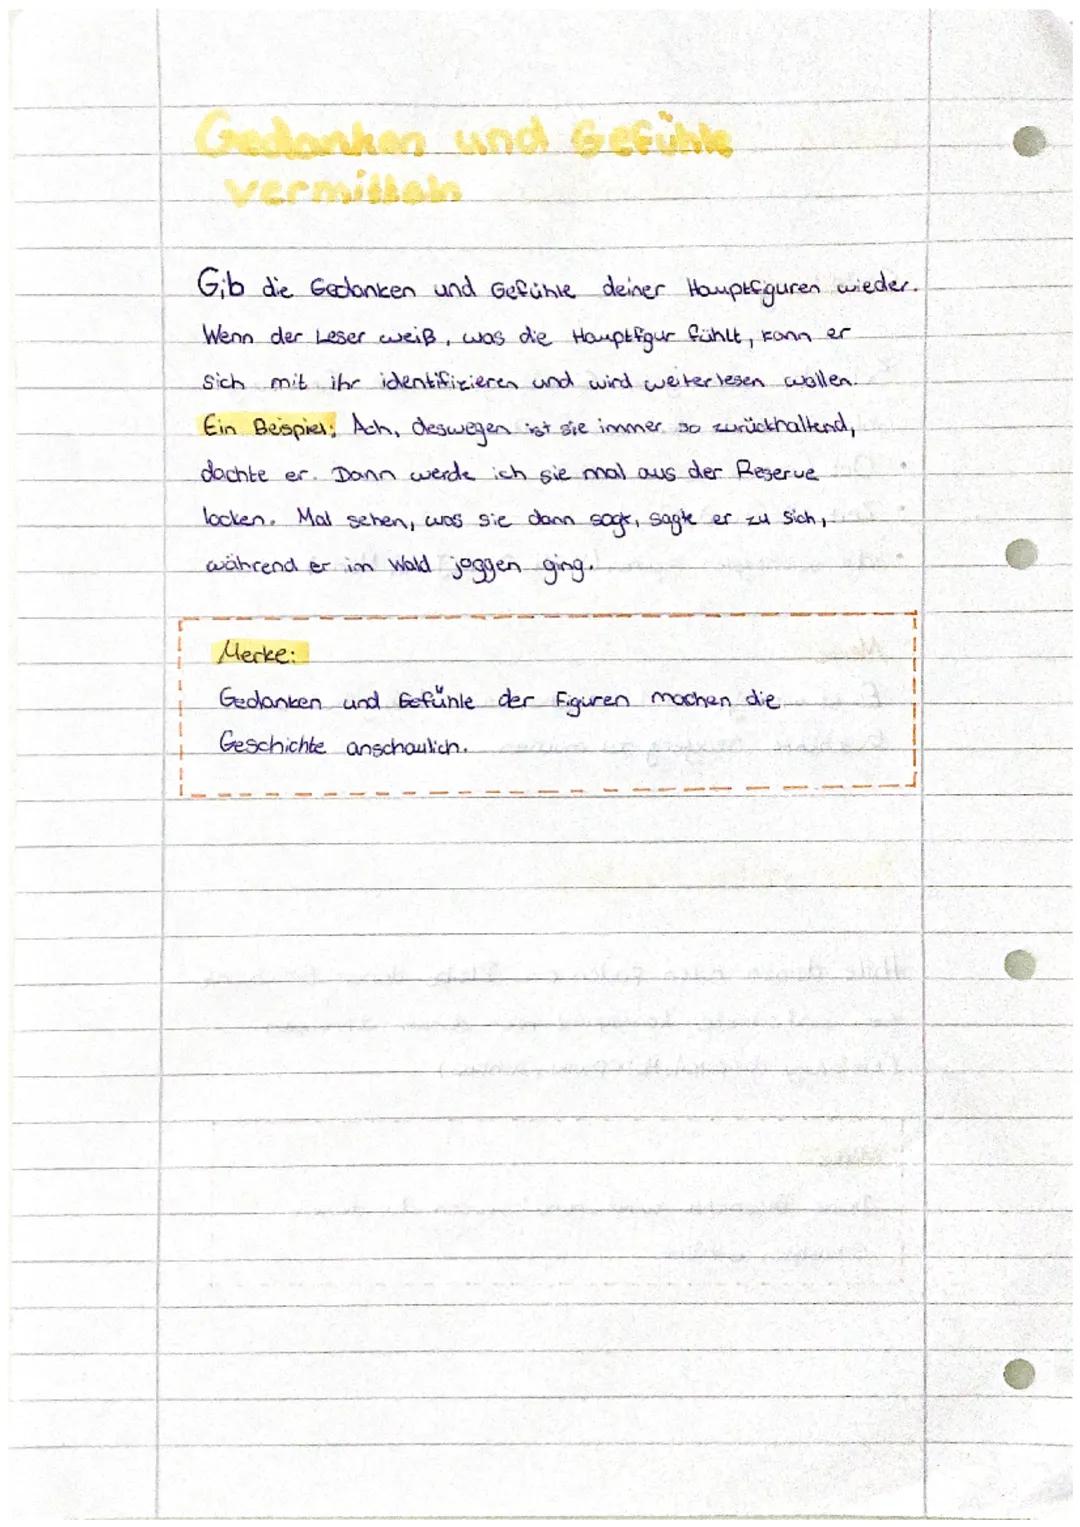 Gedanken und Gefühle
vermitteln
Gib die Gedanken und Gefühle deiner Hauptfiguren wieder.
Wenn der Leser weiß, was die Hauptfigur fühlt, kann er
sich mit ihr identifizieren und wird weiterlesen wollen.
Ein Beispiel: Ach, deswegen ist sie immer so zurückhaltend,
dachte er. Dann werde ich sie mal aus der Reserve
locken. Mal sehen, was sie dann sagt, sagte er zu sich,
während er im Wald joggen ging.
Merke:
Gedanken und Gefühle der Figuren machen die
Geschichte anschaulich.